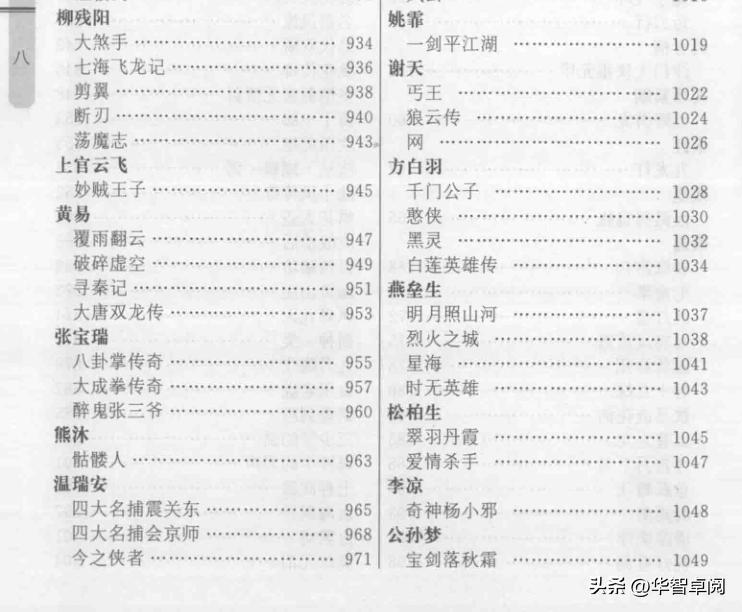 八
柳残阳
大煞手 934
七海飞龙记 936
剪翼 938
断刃 940
荡魔志 943
上官云飞
妙贼王子 945
黄易
覆雨翻云 947
破碎虚空 949
寻秦记 951
大唐双龙传 953
张宝瑞
八卦掌传奇 955
大成拳传奇 957
醉鬼张三爷 960
熊沐
骷髅人 963
温瑞安
四大名捕震关东 965
四大名捕会京师 968
今之侠者 971
姚霏
一剑平江湖 1019
谢天
丐王 1022
狼云传 1024
网 1026
方白羽
千门公子 1028
憨侠 1030
黑灵 1032
白莲英雄传 1034
燕垒生
明月照山河 1037
烈火之城 1038
星海 1041
时无英雄 1043
松柏生
翠羽丹霞 1045
爱情杀手 1047
李凉
奇神杨小邪 1048
公孙梦
宝剑落秋霜 1049
头条 @华智卓阅